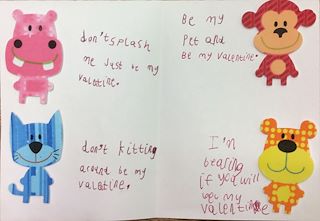 don't splash
me just be my
valentine.
Be my
Pet and
Be my valentine.
don't kitting
around be my
valentine.
I'm
bearing
if you will
be my
valentine